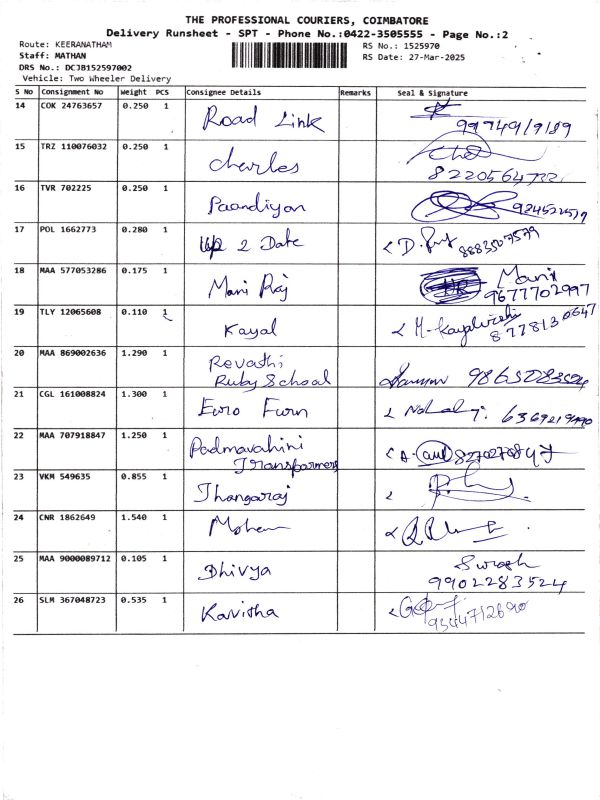 THE PROFESSIONAL COURIERS, COIMBATORE
Delivery Runsheet - SPT - Phone No.:0422-3505555 - Page No.:2
Route: KEERANATHAM
RS No.: 1525970
Staff: MATHAN
RS Date: 27-Mar-2025
DRS No.: DCJB152597002
Vehicle: Two Wheeler Delivery
S No Consignment No Weight PCS Consignee Details Remarks Seal & Signature
14 COK 24763657 0.250 1 Road Link
15 TRZ 110076032 0.250 1 Charles
16 TVR 702225 0.250 1 Paandiyan
17 POL 1662773 0.280 1 Up 2 Date 8883507579
18 MAA 577053286 0.175 1 Mani Raj Mani
9677702997
19 TLY 12065608 0.110 1 Kayal
20 MAA 869002636 1.290 1 Revathi
Ruby School
21 CGL 161008824 1.300 1 Euro Furn
22 MAA 707918847 1.250 1 Padmavahini
Transformers
23 VKM 549635 0.855 1 Thangaraj
24 CNR 1862649 1.540 1 Mohan
25 MAA 9000089712 0.105 1 Dhivya
9902283524
26 SLM 367048723 0.535 1 Kavitha
9544712690